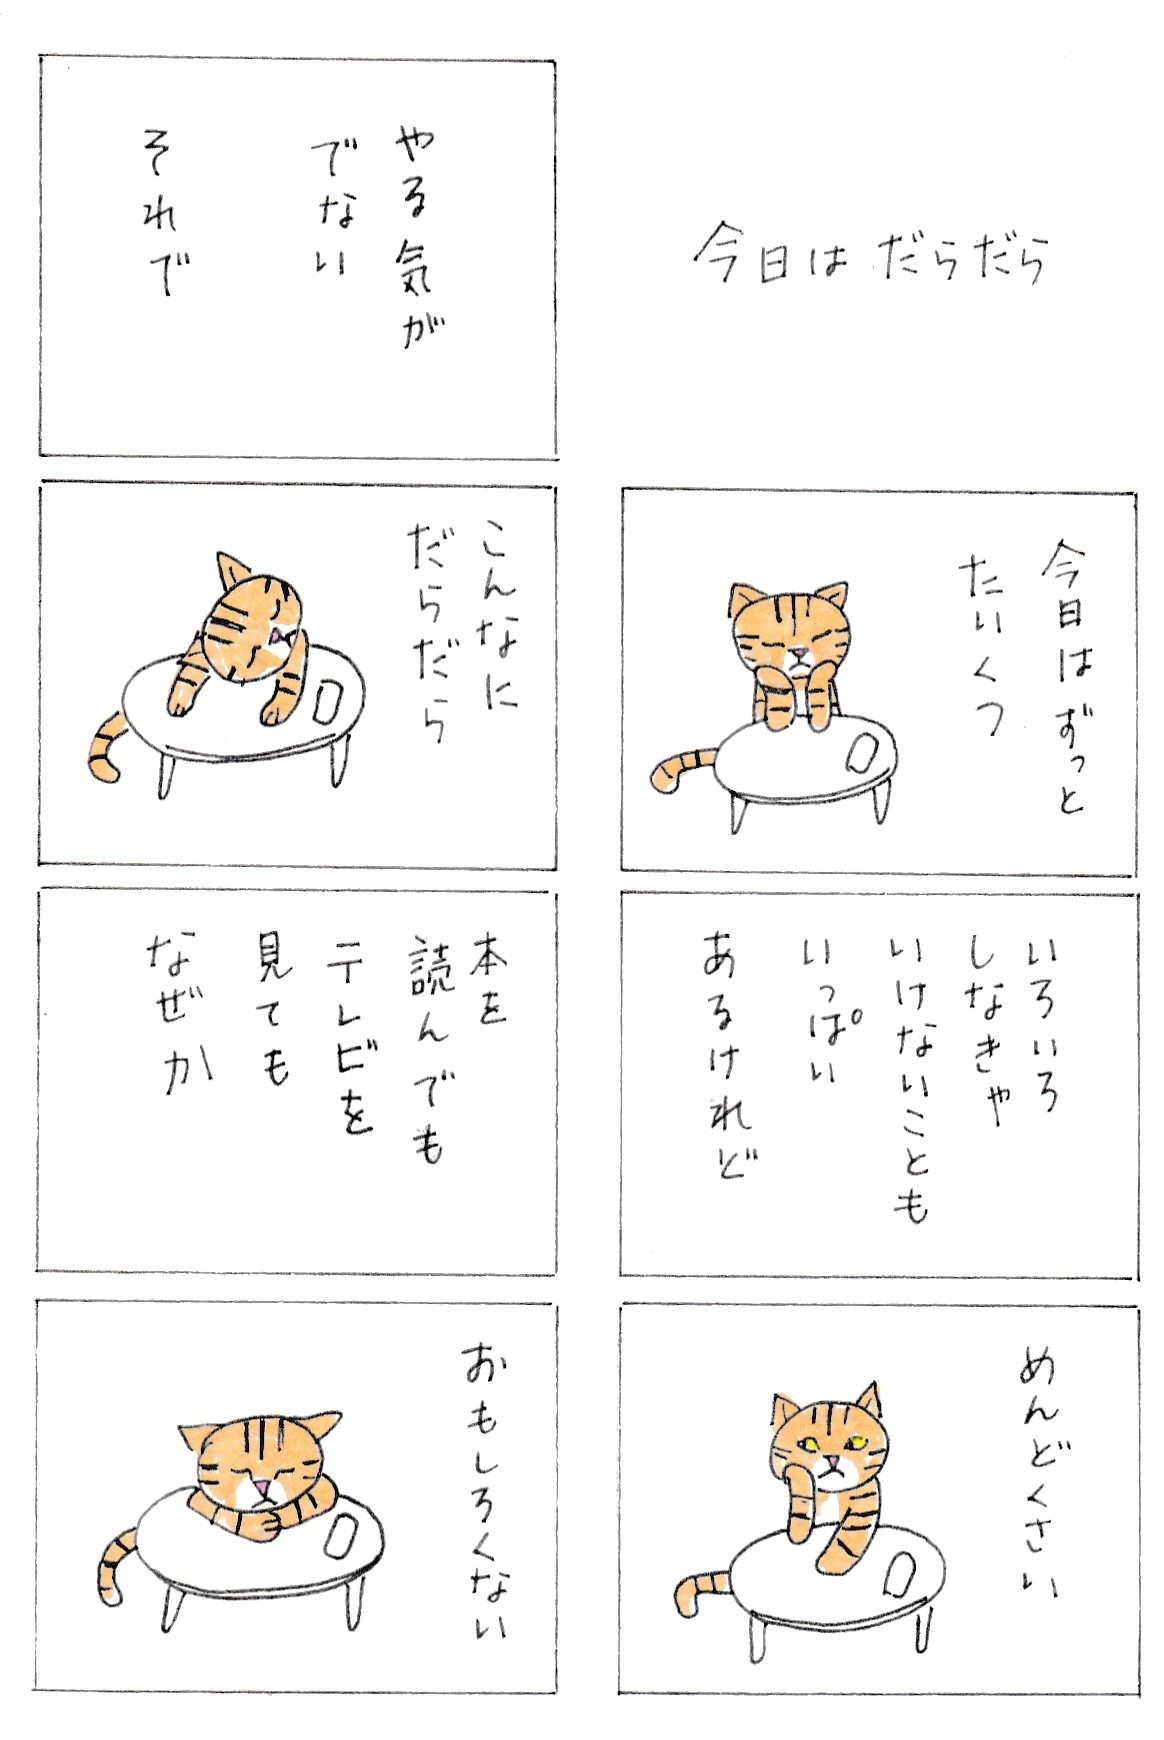 今日は だらだら
今日は ずっと
たいくつ
いろいろ
しなきゃ
いけないことも
いっぱい
あるけれど
めんどくさい
やる気が
でない
それで
こんなに
だらだら
本を
読んでも
テレビを
見ても
なぜか
おもしろくない